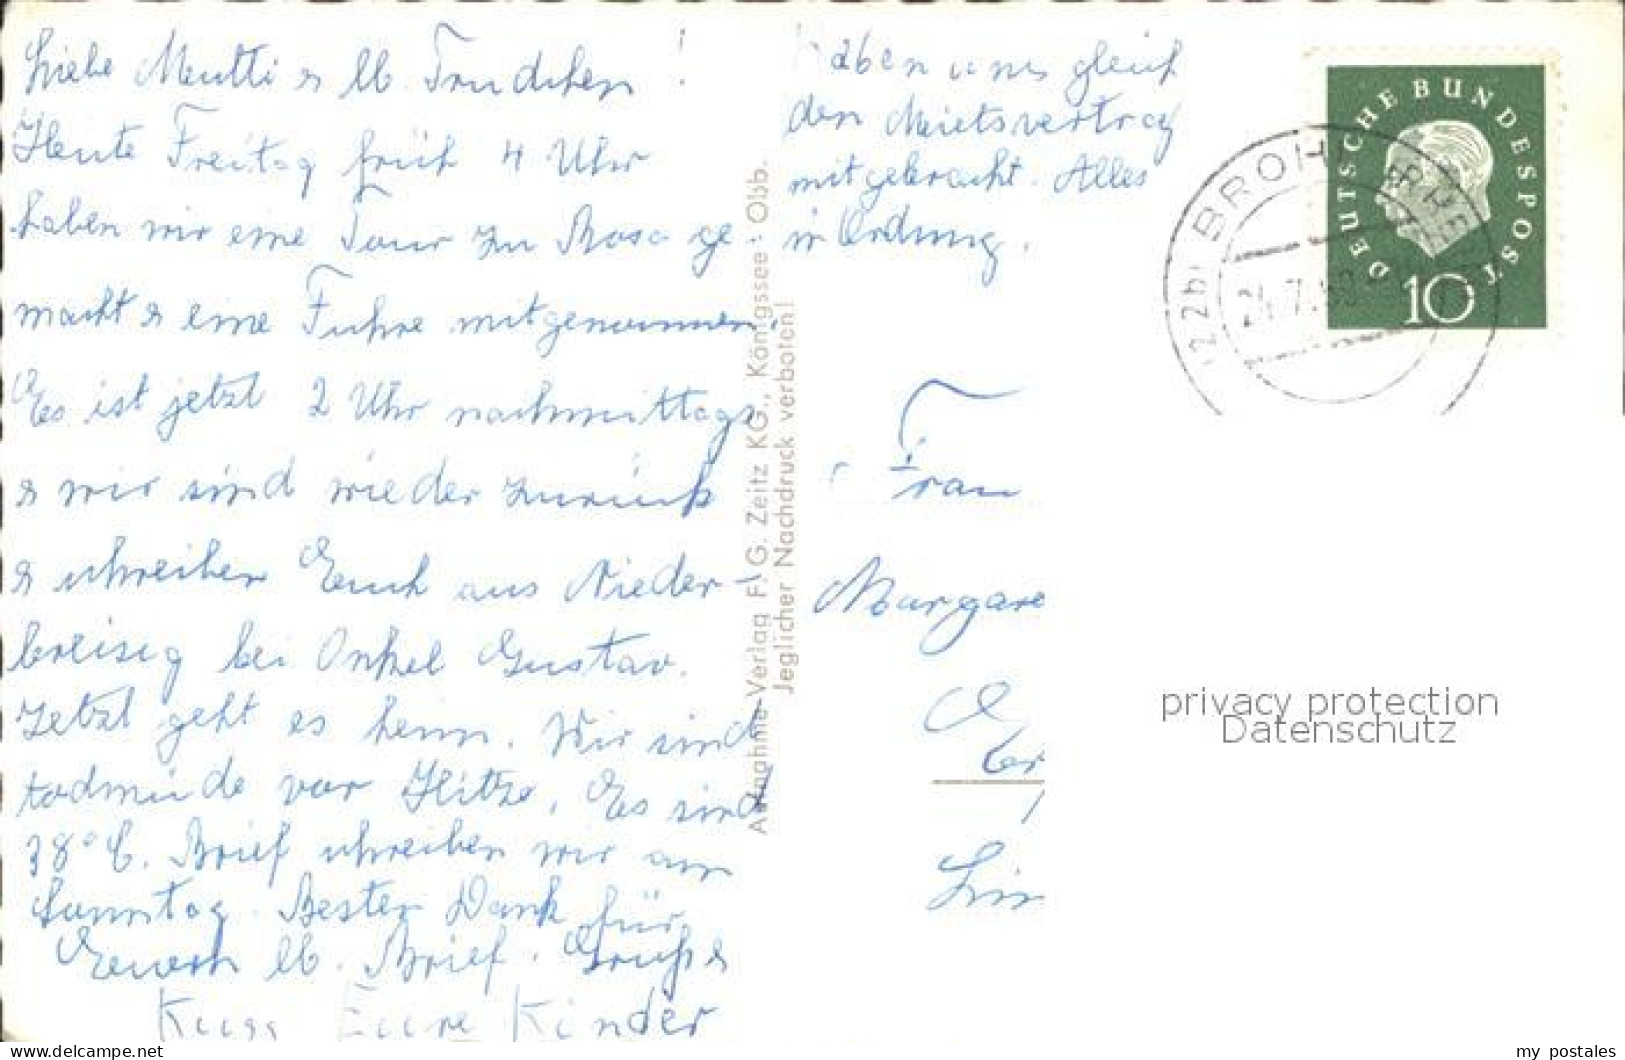 Liebe Mutti & lb. Trudchen !
Heute Freitag früh 4 Uhr
haben wir eine Tour zu Rosa ge-
macht & eine Fuhre mitgenommen.
Es ist jetzt 2 Uhr nachmittags
& wir sind wieder zurück
& schreiben Euch aus Nieder-
breisig bei Onkel Gustav.
Jetzt geht es heim. Wir sind
todmüde vor Hitze. Es sind
38° C. Brief schreiben wir am
Sonntag. Besten Dank für
Eueren lb. Brief. Gruß &
Kuss Eure Kinder
Haben uns gleich
den Mietsvertrag
mitgebracht. Alles
in Ordnung.
Aufnahme-Verlag F. G. Zeitz KG., Königssee - Obb.
Jeglicher Nachdruck verboten!
DEUTSCHE BUNDESPOST
10
(22b) BROHL
Frau
Margare
privacy protection
Datenschutz
my postales
https://www.delcampe.net